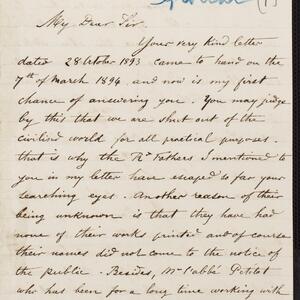 (1)
My Dear Sir.
Your very kind letter
dated 28 October 1893 came to hand on the
7th of March 1894, and now is my first
chance of answering you. You may judge
by this that we are shut out of the
civilized world for all practical purposes.
that is why the Rd Fathers I mentioned to
you in my letter have escaped so far your
searching eyes. Another reason of their
being unknown is that they have had
none of their works printed and of course
their names did not come to the notice of
the public. Besides, Mr l'abbé Petitot
who has been for a long time working with